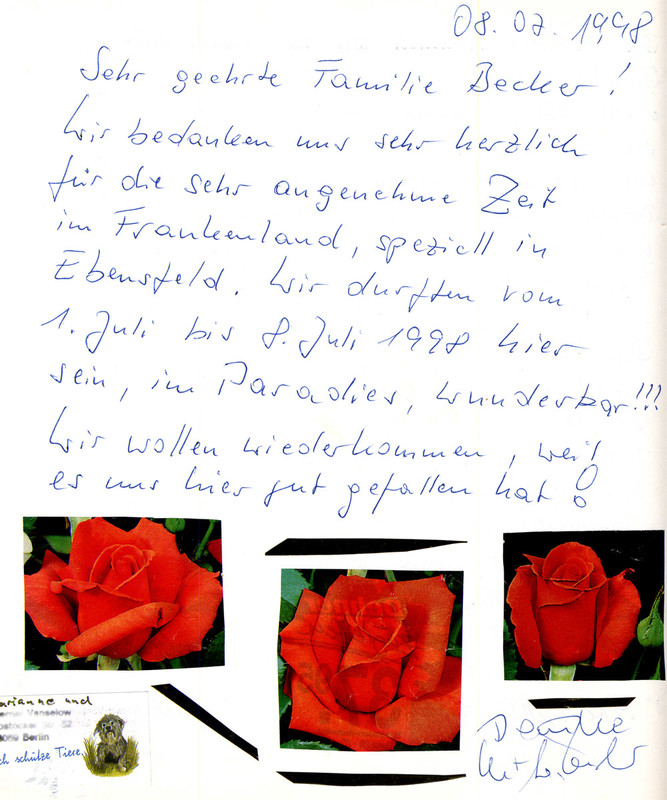 08.07.1998
Sehr geehrte Familie Becker!
Wir bedanken uns sehr herzlich
für die sehr angenehme Zeit
im Frankenland, speziell in
Ebensfeld. Wir durften vom
1. Juli bis 8. Juli 1998 hier
sein, im Paradies, wunderbar!!!
Wir wollen wiederkommen, weil
es uns hier gut gefallen hat!
arianne und
Vanselow
52
Berlin
ch schütze Tiere.